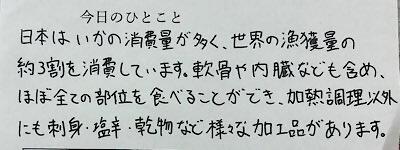 今日のひとこと
日本はいかの消費量が多く、世界の漁獲量の
約3割を消費しています。軟骨や内臓なども含め、
ほぼ全ての部位を食べることができ、加熱調理以外
にも刺身・塩辛・乾物など様々な加工品があります。